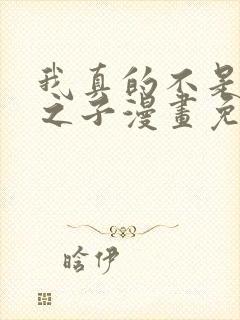 我真的不是
之子漫畫免
晗伊